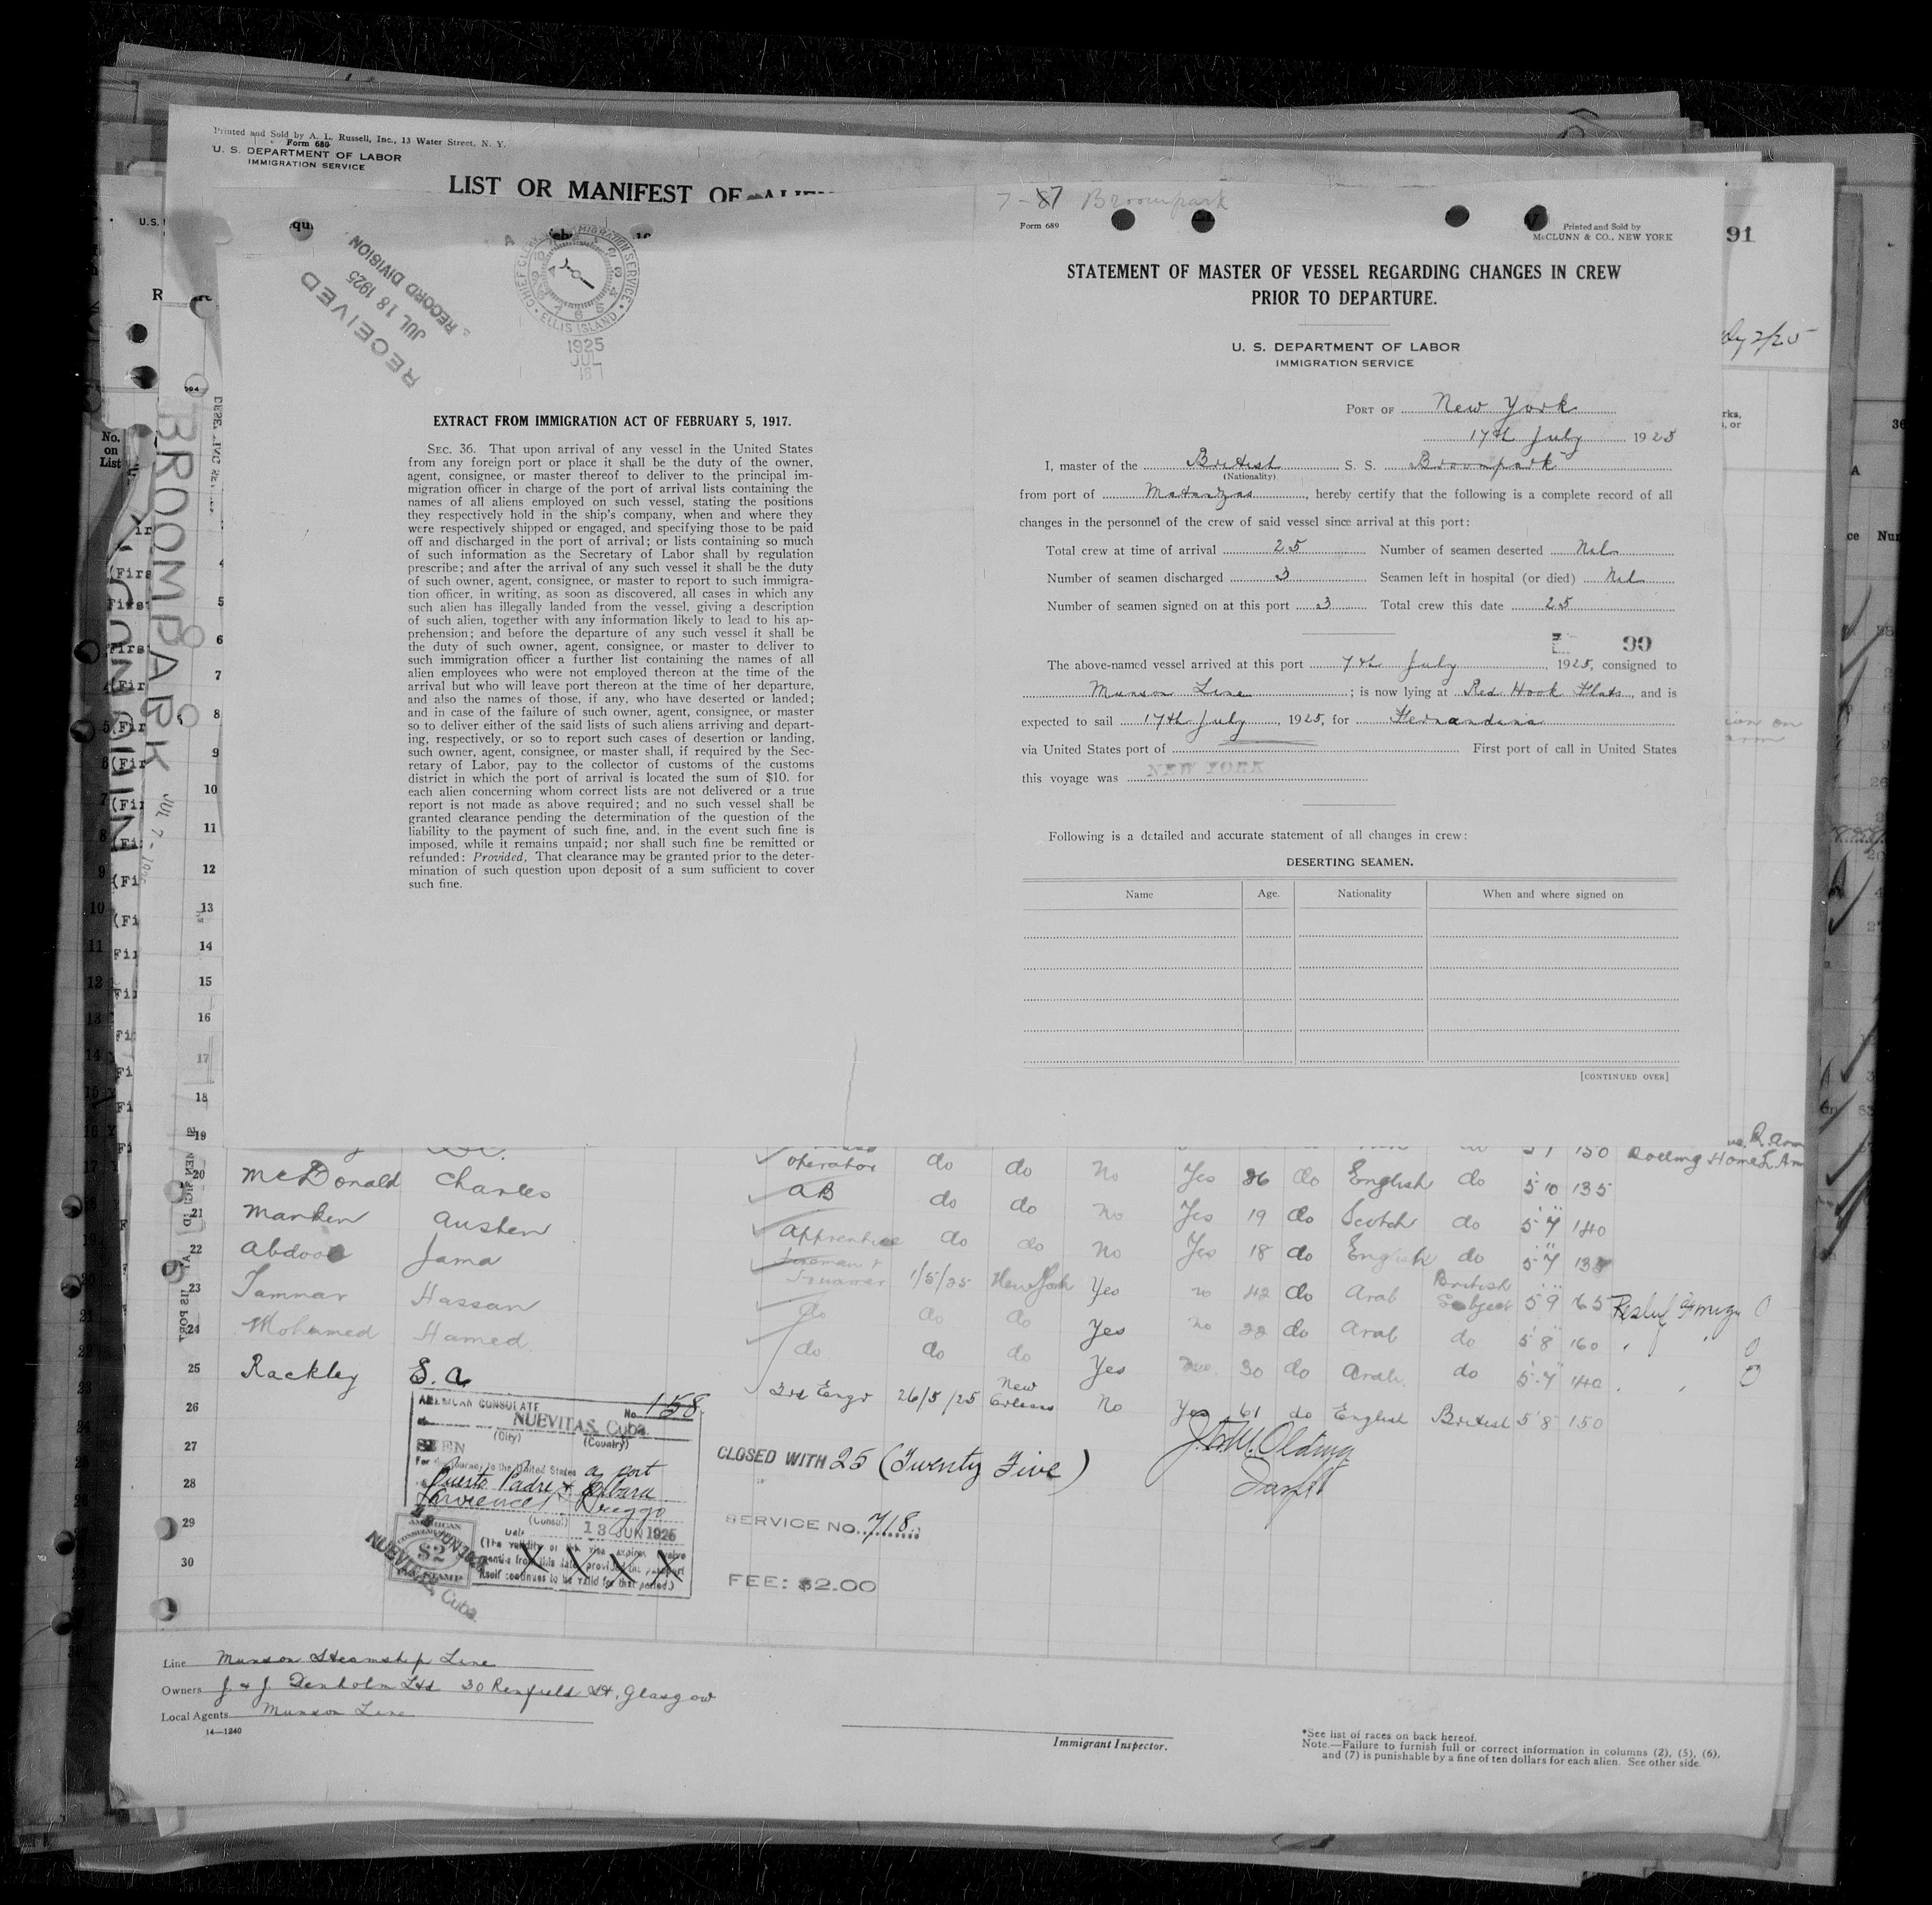 Printed and Sold by A. L. Russell, Inc., 13 Water Street, N. Y.
Form 680
U. S. DEPARTMENT OF LABOR
IMMIGRATION SERVICE
LIST OR MANIFEST OF ALIEN
RECEIVED
JUL 18 1925
RECORD DIVISION
CHIEF CLERK IMMIGRATION SERVICE
ELLIS ISLAND
1925
JUL
EXTRACT FROM IMMIGRATION ACT OF FEBRUARY 5, 1917.
SEC. 36. That upon arrival of any vessel in the United States
from any foreign port or place it shall be the duty of the owner,
agent, consignee, or master thereof to deliver to the principal im-
migration officer in charge of the port of arrival lists containing the
names of all aliens employed on such vessel, stating the positions
they respectively hold in the ship's company, when and where they
were respectively shipped or engaged, and specifying those to be paid
off and discharged in the port of arrival; or lists containing so much
of such information as the Secretary of Labor shall by regulation
prescribe; and after the arrival of any such vessel it shall be the duty
of such owner, agent, consignee, or master to report to such immigra-
tion officer, in writing, as soon as discovered, all cases in which any
such alien has illegally landed from the vessel, giving a description
of such alien, together with any information likely to lead to his ap-
prehension; and before the departure of any such vessel it shall be
the duty of such owner, agent, consignee, or master to deliver to
such immigration officer a further list containing the names of all
alien employees who were not employed thereon at the time of the
arrival but who will leave port thereon at the time of her departure,
and also the names of those, if any, who have deserted or landed;
and in case of the failure of such owner, agent, consignee, or master
so to deliver either of the said lists of such aliens arriving and depart-
ing, respectively, or so to report such cases of desertion or landing,
such owner, agent, consignee, or master shall, if required by the Sec-
retary of Labor, pay to the collector of customs of the customs
district in which the port of arrival is located the sum of $10. for
each alien concerning whom correct lists are not delivered or a true
report is not made as above required; and no such vessel shall be
granted clearance pending the determination of the question of the
liability to the payment of such fine, and, in the event such fine is
imposed, while it remains unpaid; nor shall such fine be remitted or
refunded: Provided, That clearance may be granted prior to the deter-
mination of such question upon deposit of a sum sufficient to cover
such fine.
7-87 Broompark
Form 689
Printed and Sold by
McCLUNN & CO., NEW YORK
91
STATEMENT OF MASTER OF VESSEL REGARDING CHANGES IN CREW
PRIOR TO DEPARTURE.
U. S. DEPARTMENT OF LABOR
IMMIGRATION SERVICE
PORT OF New York
17th July 1925
I, master of the British S. S. Broompark
(Nationality)
from port of Matanzas, hereby certify that the following is a complete record of all
changes in the personnel of the crew of said vessel since arrival at this port:
Total crew at time of arrival 25 Number of seamen deserted Nil
Number of seamen discharged 3 Seamen left in hospital (or died) Nil
Number of seamen signed on at this port 3 Total crew this date 25
90
The above-named vessel arrived at this port 7th July, 1925, consigned to
Munson Line; is now lying at Red Hook Flats, and is
expected to sail 17th July, 1925, for Fernandina
via United States port of First port of call in United States
this voyage was NEW YORK
Following is a detailed and accurate statement of all changes in crew:
DESERTING SEAMEN.
Name Age. Nationality When and where signed on
[CONTINUED OVER]
BROOMPARK JUL 7 - 1925
No.
on
List
4
5
6
7
8
9
10
11
12
13
14
15
16
17
18
19
operator do do No Yes 26 do English do 5 10 135
20 McDonald Charles AB do do No Yes 19 do Scotch do 5 7 140
21 Manken Austen Apprentice do do No Yes 18 do English do 5 7
22 Abdool Jama Fireman & Trimmer 1/5/25 New York Yes no 42 do Arab British Subject 5 9 165
23 Tammar Hassan do do do Yes no 22 do Arab do 5 8 160
24 Mohamed Hamed do do do Yes 30 do Arab do 5 7 140
25 Rackley S. A. 3rd Engr 26/5/25 New Orleans No Yes 61 do English British 5 8 150
26
27
28
29
30
AMERICAN CONSULATE
No. 158
NUEVITAS, Cuba.
(City) (Country)
SEEN
For the journey to the United States
Puerto Padre
(Consul)
Date 13 JUN 1925
(The validity of this visa expires twelve
months from this date provided the passport
itself continues to be valid for that period.)
X X X X
AMERICAN
$2
FEE STAMP
NUEVITAS, Cuba.
CLOSED WITH 25 (Twenty Five)
SERVICE NO. 718
FEE: $2.00
Line Munson Steamship Line
Owners J & J. Denholm Ltd 30 Renfield St. Glasgow
Local Agents Munson Line
14—1240
Immigrant Inspector.
*See list of races on back hereof.
Note.—Failure to furnish full or correct information in columns (2), (5), (6),
and (7) is punishable by a fine of ten dollars for each alien. See other side.